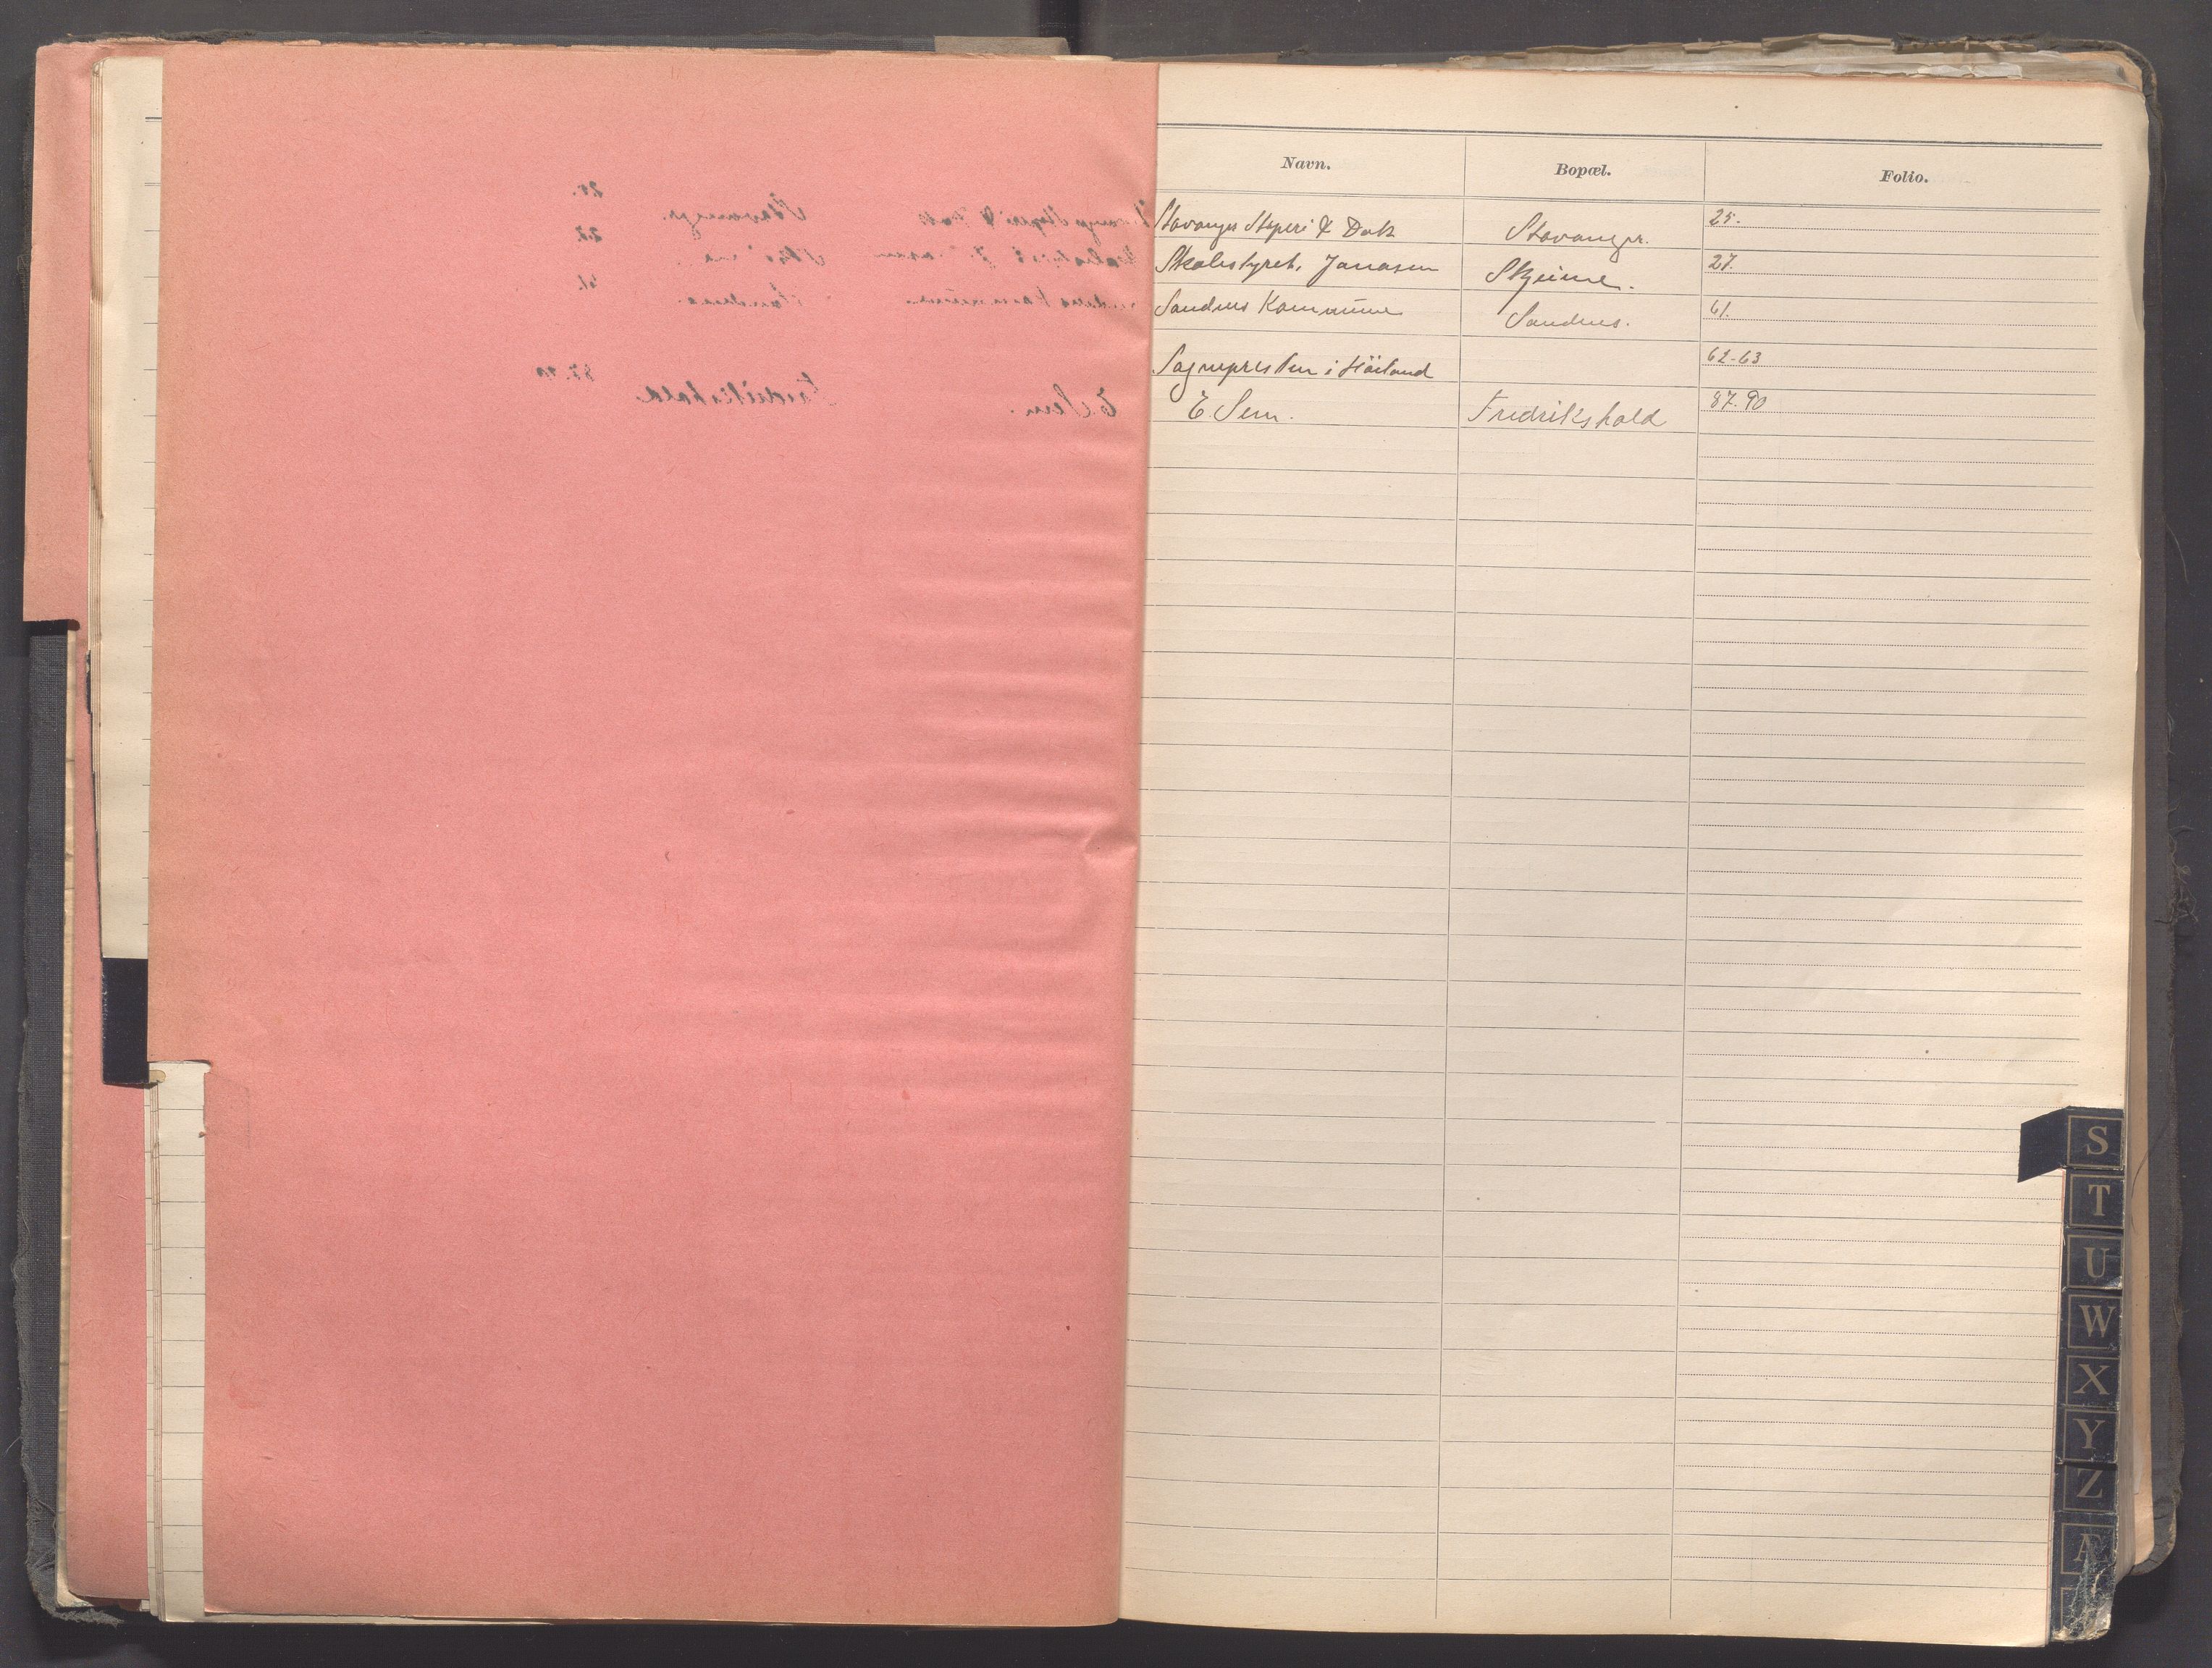 Navn. Bopæl. Folio.
Stavanger Støperi & Dok Stavanger. 25.
Skolestyret, Jonasen Skjeime. 27.
Sandnes Kommune Sandnes. 61.
Sognepresten i Höiland 62-63
E. Sem. Fredrikshald 87. 90
S
T
U
W
X
Y
Z
Æ